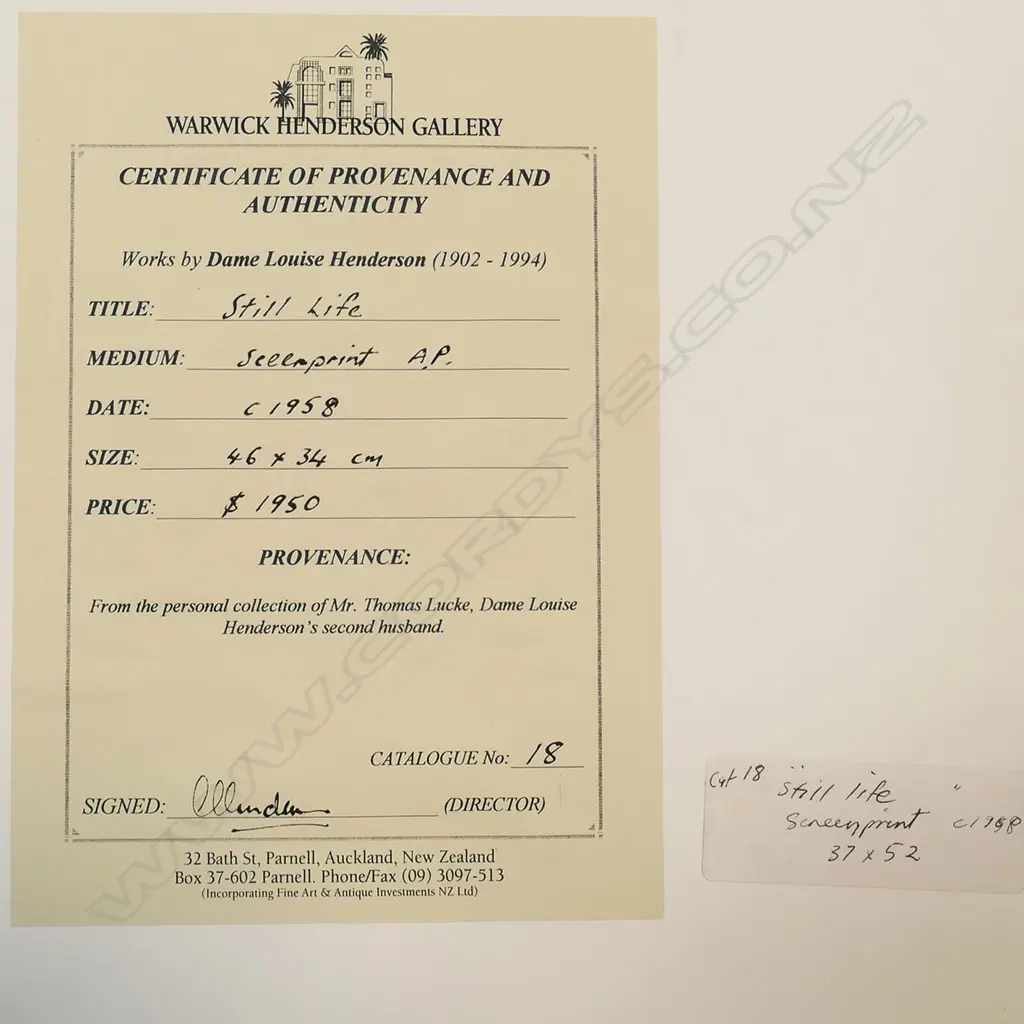 WARWICK HENDERSON GALLERY
CERTIFICATE OF PROVENANCE AND
AUTHENTICITY
Works by Dame Louise Henderson (1902 - 1994)
TITLE: Still Life
MEDIUM: Screenprint A.P.
DATE: c 1958
SIZE: 46 x 34 cm
PRICE: $ 1950
PROVENANCE:
From the personal collection of Mr. Thomas Lucke, Dame Louise
Henderson's second husband.
CATALOGUE No: 18
SIGNED: (DIRECTOR)
32 Bath St, Parnell, Auckland, New Zealand
Box 37-602 Parnell. Phone/Fax (09) 3097-513
(Incorporating Fine Art & Antique Investments NZ Ltd)
Cat 18 "Still life"
Screenprint c1958
37 x 52
WWW.CORDYS.CO.NZ